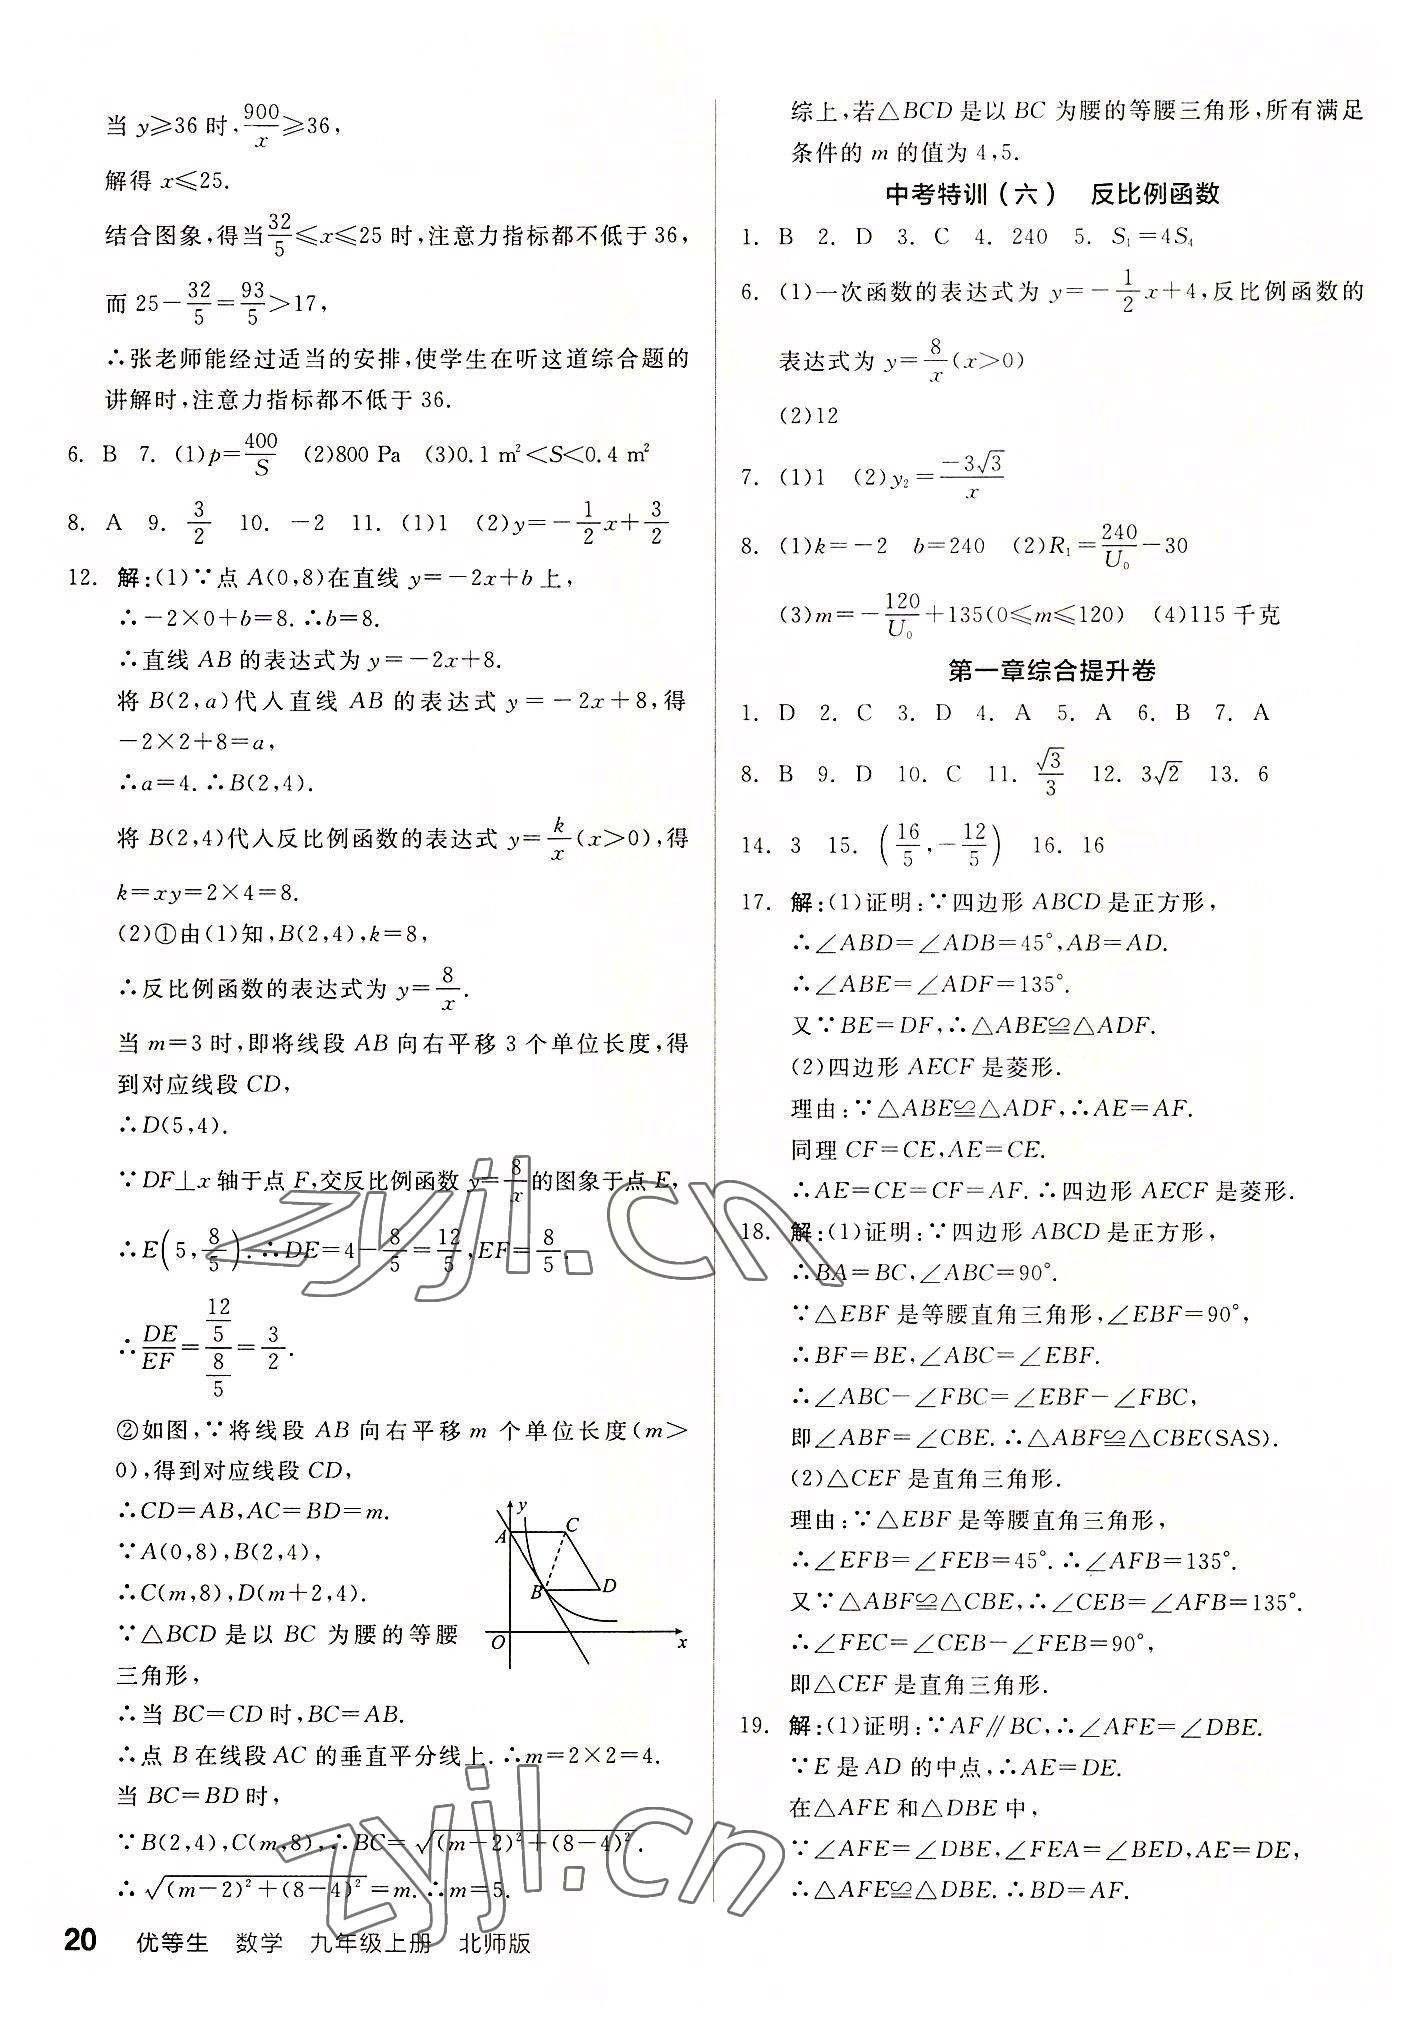 当 y≥36 时,900/x≥36,
解得 x≤25.
结合图象,得当32/5≤x≤25 时,注意力指标都不低于 36,
而 25-32/5=93/5>17,
∴张老师能经过适当的安排,使学生在听这道综合题的
讲解时,注意力指标都不低于 36.
6. B 7. (1)p=400/S (2)800 Pa (3)0.1 m²<S<0.4 m²
8. A 9. 3/2 10. -2 11. (1)1 (2)y=-1/2x+3/2
12. 解:(1)∵点 A(0,8)在直线 y=-2x+b 上,
∴-2×0+b=8. ∴b=8.
∴直线 AB 的表达式为 y=-2x+8.
将 B(2,a)代人直线 AB 的表达式 y=-2x+8,得
-2×2+8=a,
∴a=4. ∴B(2,4).
将 B(2,4)代人反比例函数的表达式 y=k/x(x>0),得
k=xy=2×4=8.
(2)①由(1)知,B(2,4),k=8,
∴反比例函数的表达式为 y=8/x.
当 m=3 时,即将线段 AB 向右平移 3 个单位长度,得
到对应线段 CD,
∴D(5,4).
∵DF⊥x 轴于点 F,交反比例函数 y=8/x的图象于点 E,
∴E(5,8/5). ∴DE=4-8/5=12/5,EF=8/5.
∴DE/EF=(12/5)/(8/5)=3/2.
②如图,∵将线段 AB 向右平移 m 个单位长度(m>
0),得到对应线段 CD,
∴CD=AB,AC=BD=m.
∵A(0,8),B(2,4),
∴C(m,8),D(m+2,4).
∵△BCD 是以 BC 为腰的等腰
三角形,
y
A
C
B
D
O
x
∴当 BC=CD 时,BC=AB.
∴点 B 在线段 AC 的垂直平分线上. ∴m=2×2=4.
当 BC=BD 时,
∵B(2,4),C(m,8),∴BC=√((m-2)²+(8-4)²).
∴√((m-2)²+(8-4)²)=m. ∴m=5.
综上,若△BCD 是以 BC 为腰的等腰三角形,所有满足
条件的 m 的值为 4,5.
中考特训(六) 反比例函数
1. B 2. D 3. C 4. 240 5. S₁=4S₄
6. (1)一次函数的表达式为 y=-1/2x+4,反比例函数的
表达式为 y=8/x(x>0)
(2)12
7. (1)1 (2)y₂=-3√3/x
8. (1)k=-2 b=240 (2)R₁=240/U₀-30
(3)m=-120/U₀+135(0≤m≤120) (4)115 千克
第一章综合提升卷
1. D 2. C 3. D 4. A 5. A 6. B 7. A
8. B 9. D 10. C 11. √3/3 12. 3√2 13. 6
14. 3 15. (16/5,-12/5) 16. 16
17. 解:(1)证明:∵四边形 ABCD 是正方形,
∴∠ABD=∠ADB=45°,AB=AD.
∴∠ABE=∠ADF=135°.
又∵BE=DF,∴△ABE≌△ADF.
(2)四边形 AECF 是菱形.
理由:∵△ABE≌△ADF,∴AE=AF.
同理 CF=CE,AE=CE.
∴AE=CE=CF=AF. ∴四边形 AECF 是菱形.
18. 解:(1)证明:∵四边形 ABCD 是正方形,
∴BA=BC,∠ABC=90°.
∵△EBF 是等腰直角三角形,∠EBF=90°,
∴BF=BE,∠ABC=∠EBF.
∴∠ABC-∠FBC=∠EBF-∠FBC,
即∠ABF=∠CBE. ∴△ABF≌△CBE(SAS).
(2)△CEF 是直角三角形.
理由:∵△EBF 是等腰直角三角形,
∴∠EFB=∠FEB=45°. ∴∠AFB=135°.
又∵△ABF≌△CBE,∴∠CEB=∠AFB=135°.
∴∠FEC=∠CEB-∠FEB=90°,
即△CEF 是直角三角形.
19. 解:(1)证明:∵AF∥BC,∴∠AFE=∠DBE.
∵E 是 AD 的中点,∴AE=DE.
在△AFE 和△DBE 中,
∵∠AFE=∠DBE,∠FEA=∠BED,AE=DE,
∴△AFE≌△DBE. ∴BD=AF.
zyjl.cn
zyjl.cn
20 优等生 数学 九年级上册 北师版